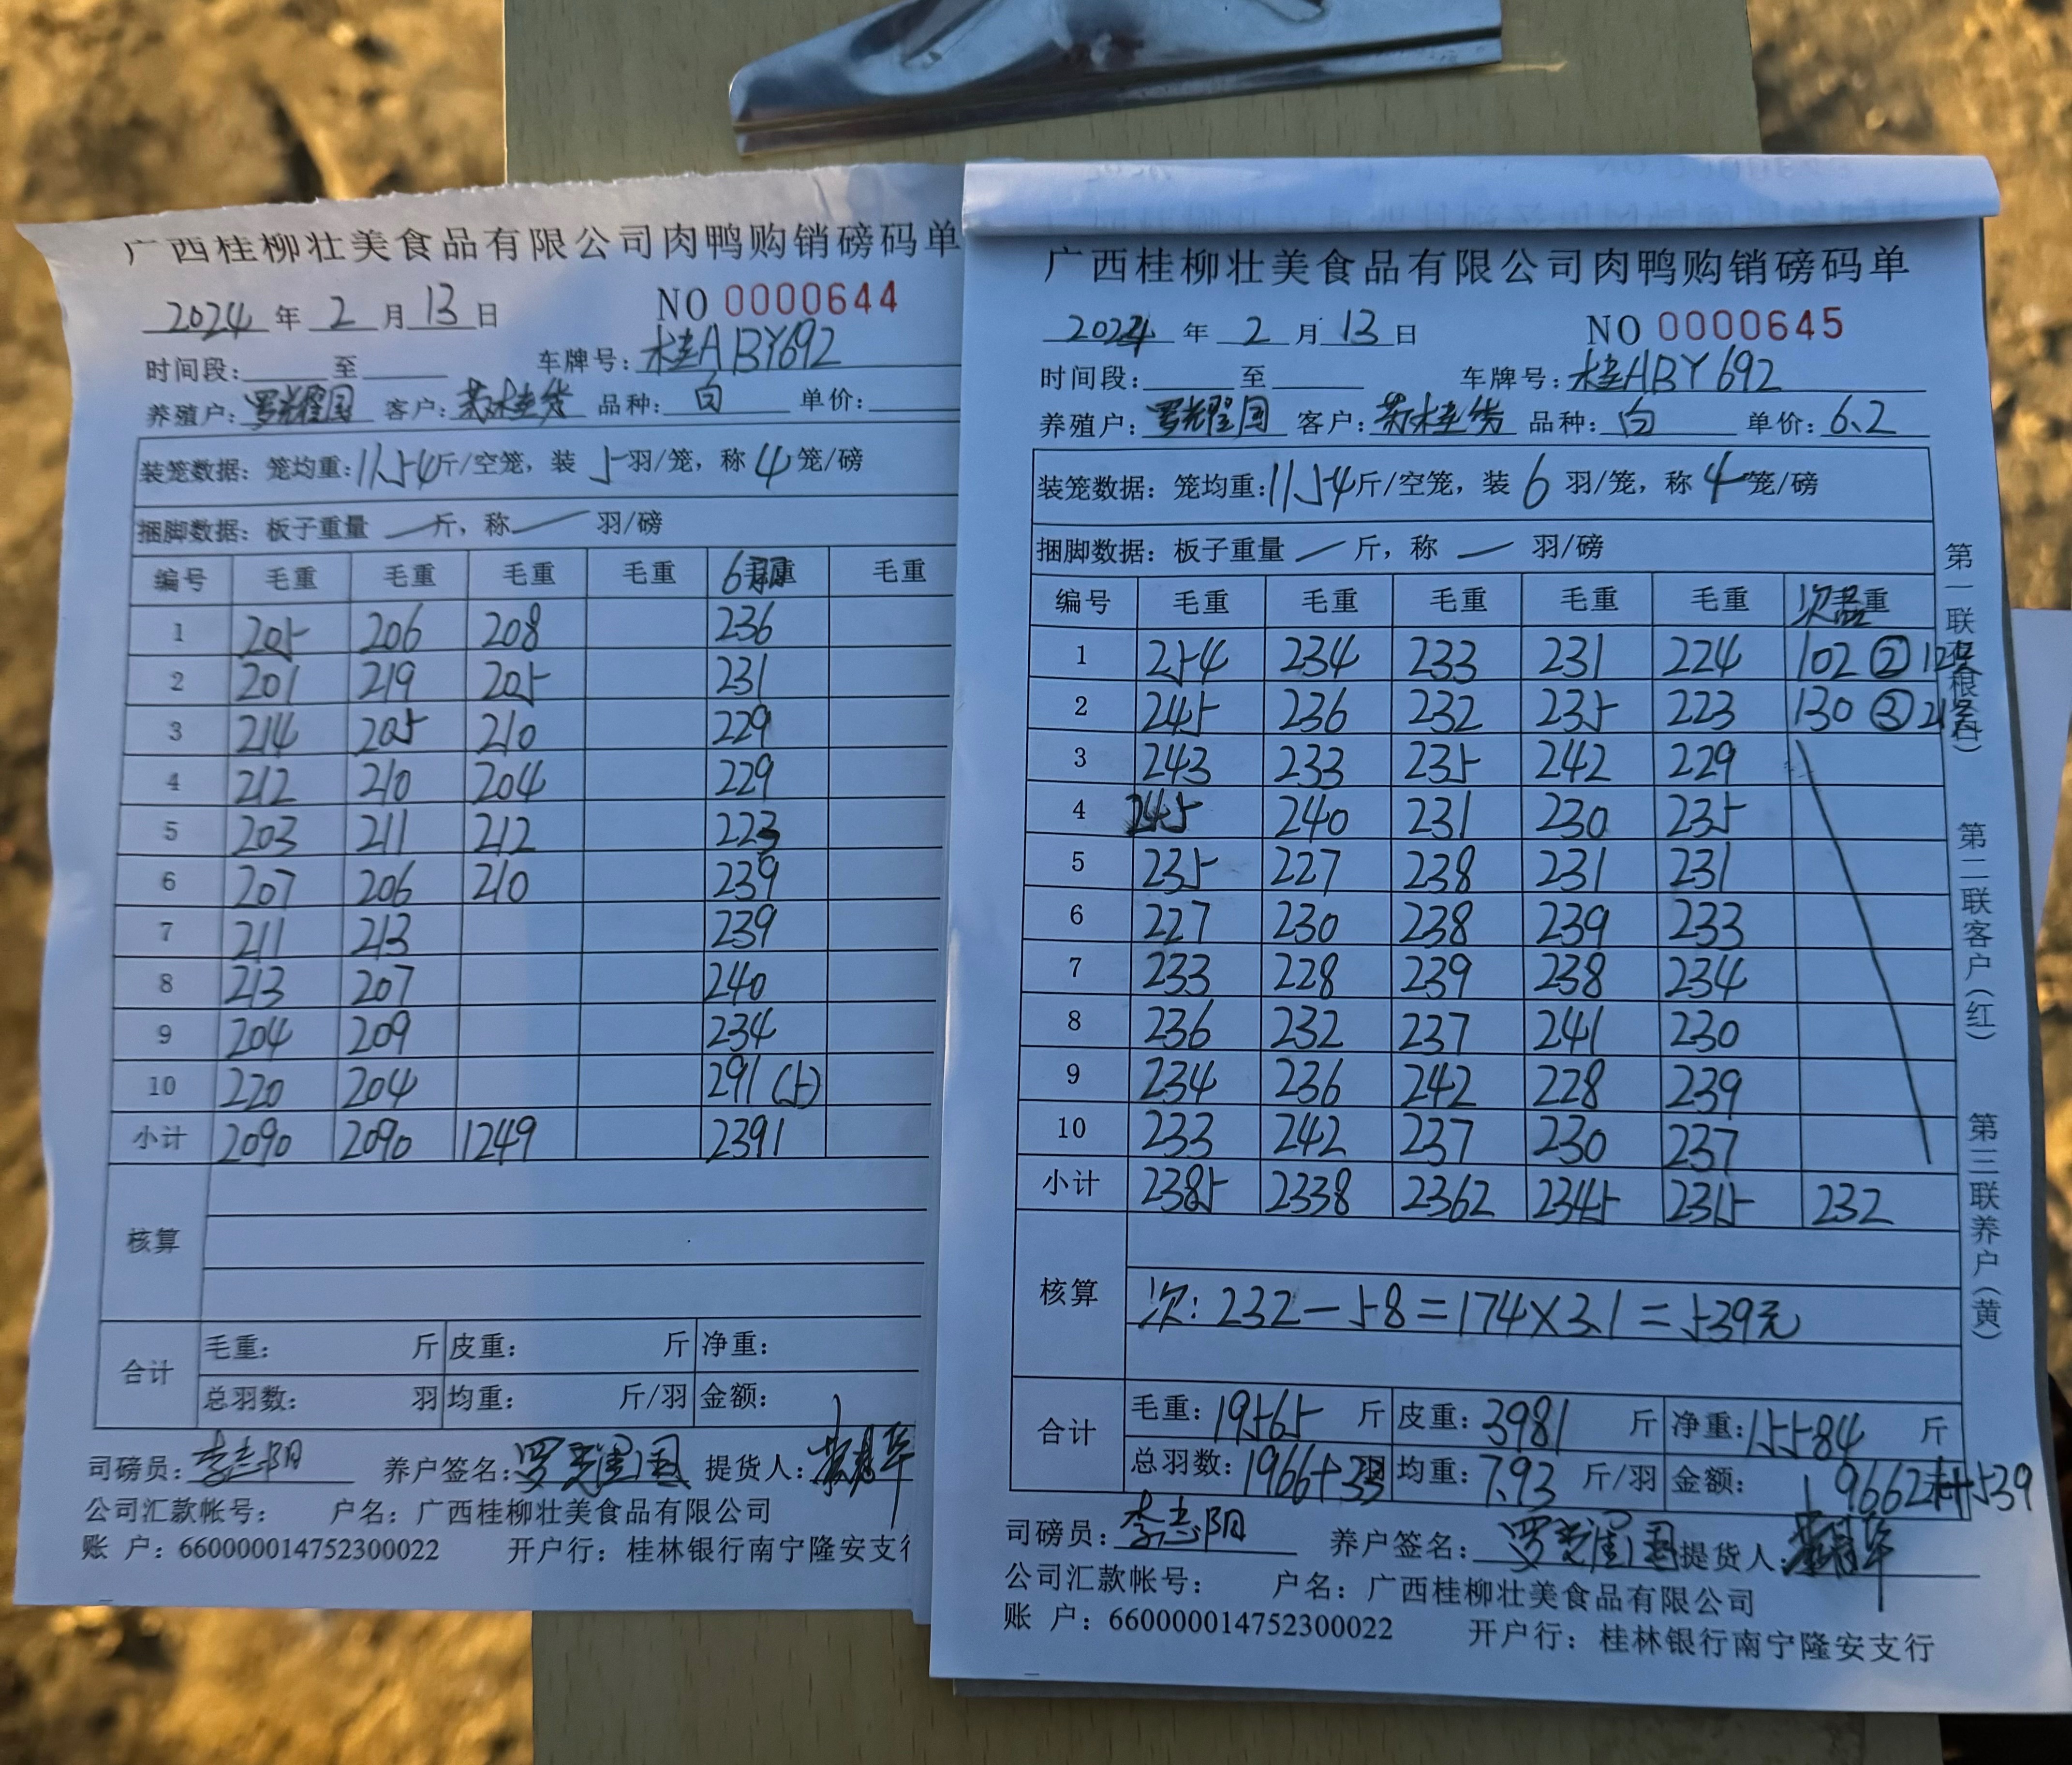 广西桂柳壮美食品有限公司肉鸭购销磅码单
2024 年 2 月 13 日 NO 0000644
时间段: 至 车牌号: 桂ABY692
养殖户: 罗耀国 客户: 品种: 白 单价:
装笼数据: 笼均重: 11.54 斤/空笼, 装 5 羽/笼, 称 4 笼/磅
捆脚数据: 板子重量 — 斤, 称 — 羽/磅
编号 毛重 毛重 毛重 毛重 6羽 毛重
1 205 206 208 236
2 201 219 205 231
3 214 205 210 229
4 212 210 204 229
5 203 211 212 223
6 207 206 210 239
7 211 213 239
8 213 207 240
9 204 209 234
10 220 204 291 (5)
小计 2090 2090 1249 2391
核算
合计 毛重: 斤 皮重: 斤 净重:
总羽数: 羽 均重: 斤/羽 金额:
司磅员: 李志阳 养户签名: 罗耀国 提货人:
公司汇款帐号: 户名: 广西桂柳壮美食品有限公司
账 户: 660000014752300022 开户行: 桂林银行南宁隆安支行
广西桂柳壮美食品有限公司肉鸭购销磅码单
2024 年 2 月 13 日 NO 0000645
时间段: 至 车牌号: 桂ABY692
养殖户: 罗耀国 客户: 品种: 白 单价: 6.2
装笼数据: 笼均重: 11.54 斤/空笼, 装 6 羽/笼, 称 4 笼/磅
捆脚数据: 板子重量 — 斤, 称 — 羽/磅
编号 毛重 毛重 毛重 毛重 毛重 次品
1 254 234 233 231 224 102 ② 12
2 245 236 232 235 223 130 ③ 21
3 243 233 235 242 229
4 245 240 231 230 235
5 235 227 238 231 231
6 227 230 238 239 233
7 233 228 239 238 234
8 236 232 237 241 230
9 234 236 242 228 239
10 233 242 237 230 237
小计 2385 2338 2362 2345 2315 232
核算 次: 232 — 58 = 174 × 3.1 = 539元
合计 毛重: 19565 斤 皮重: 3981 斤 净重: 15584 斤
总羽数: 1966+33 羽 均重: 7.93 斤/羽 金额: 96621+539
司磅员: 李志阳 养户签名: 罗耀国 提货人:
公司汇款帐号: 户名: 广西桂柳壮美食品有限公司
账 户: 660000014752300022 开户行: 桂林银行南宁隆安支行
第一联存根(白) 第二联客户(红) 第三联养户(黄)